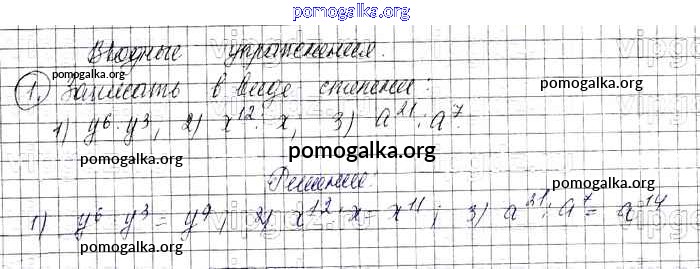 pomogalka.org
Вводные упражнения.
pomogalka.org
1. Записать в виде степени:
pomogalka.org
1) y⁶·y³, 2) x¹²:x, 3) a²¹:a⁷.
pomogalka.org
pomogalka.org
Решение.
pomogalka.org
1) y⁶·y³ = y⁹; 2) x¹²:x = x¹¹; 3) a²¹:a⁷ = a¹⁴
pomogalka.org